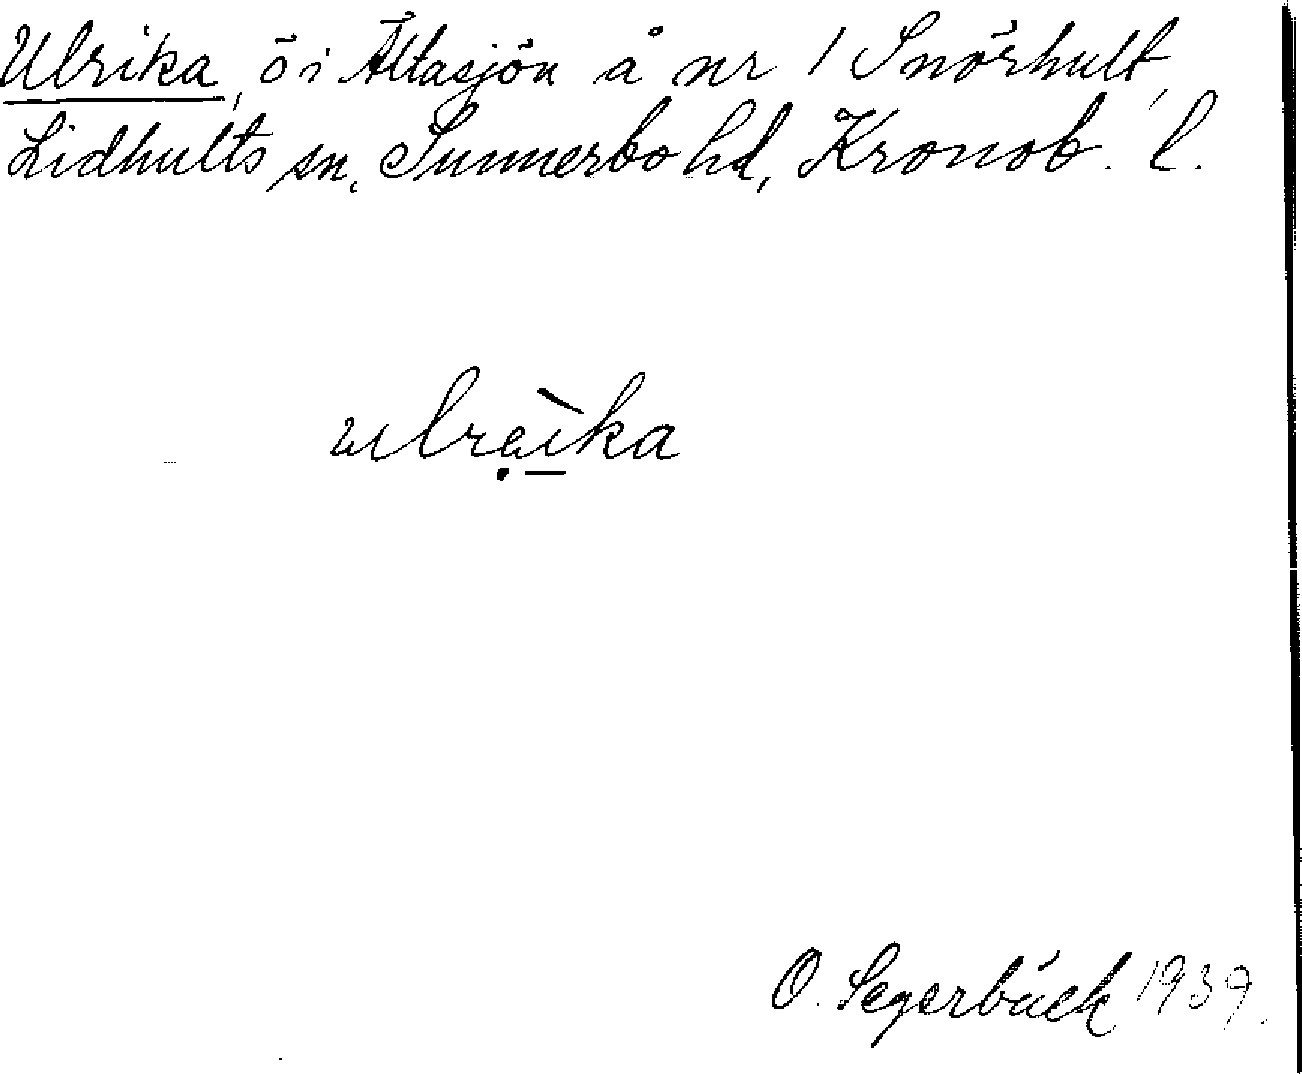 Ulrika, ö i Ältasjön å nr 1 Snörhult,
Lidhults sn, Sunnerbo hd, Kronob. l.
ulrẹì̱ka
O. Segerbäck 1939.